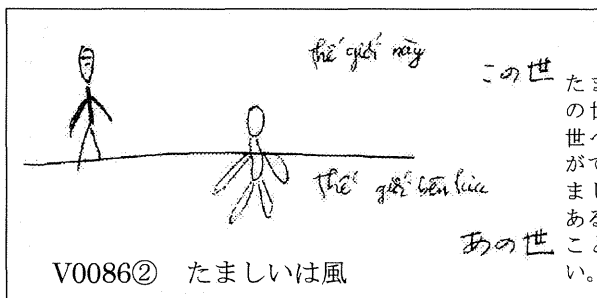 thế giới này
この世
thế giới bên kia
あの世
V0086② たましいは風
たま
の世
世へ
がで
まし
ある
こと
い。